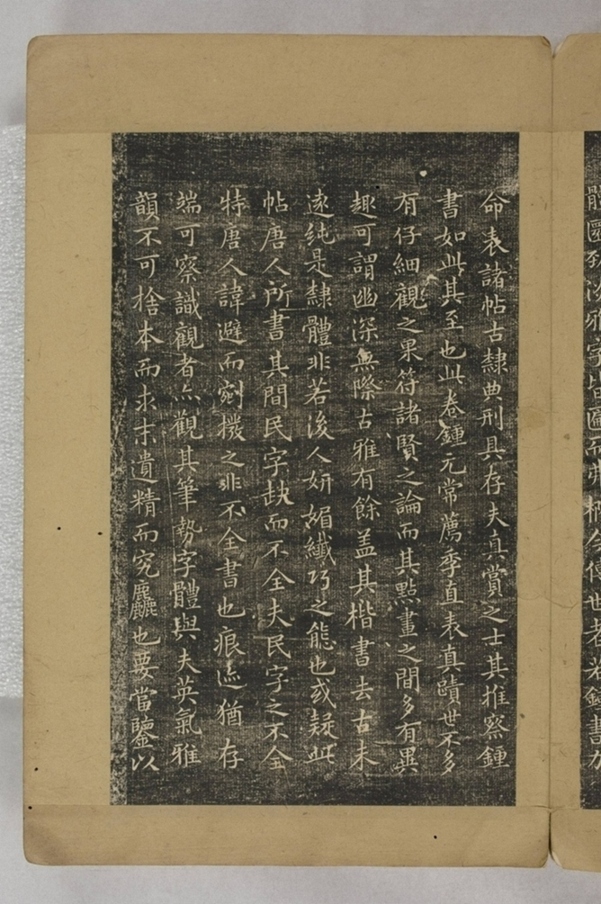 體圓於淡雅字皆圓而
今傳世者若鍾書力
命表諸帖古隸典刑具存夫真賞之士其推察鍾
書如此其至也此卷鍾元常薦季直表真賾世不多
有仔細觀之果符諸賢之論而其點畫之間多有異
趣可謂幽深無際古雅有餘盖其楷書去古未
遠純是隸體非若後人妍媚纖巧之態也或疑此
帖唐人所書其間民字缺而不全夫民字之不全
特唐人諱避而剜攃之非不全書也痕迹猶存
端可察識觀者亦觀其筆勢字體與夫英氣雅
韻不可捨本而求末遺精而究麤也要當鑒以